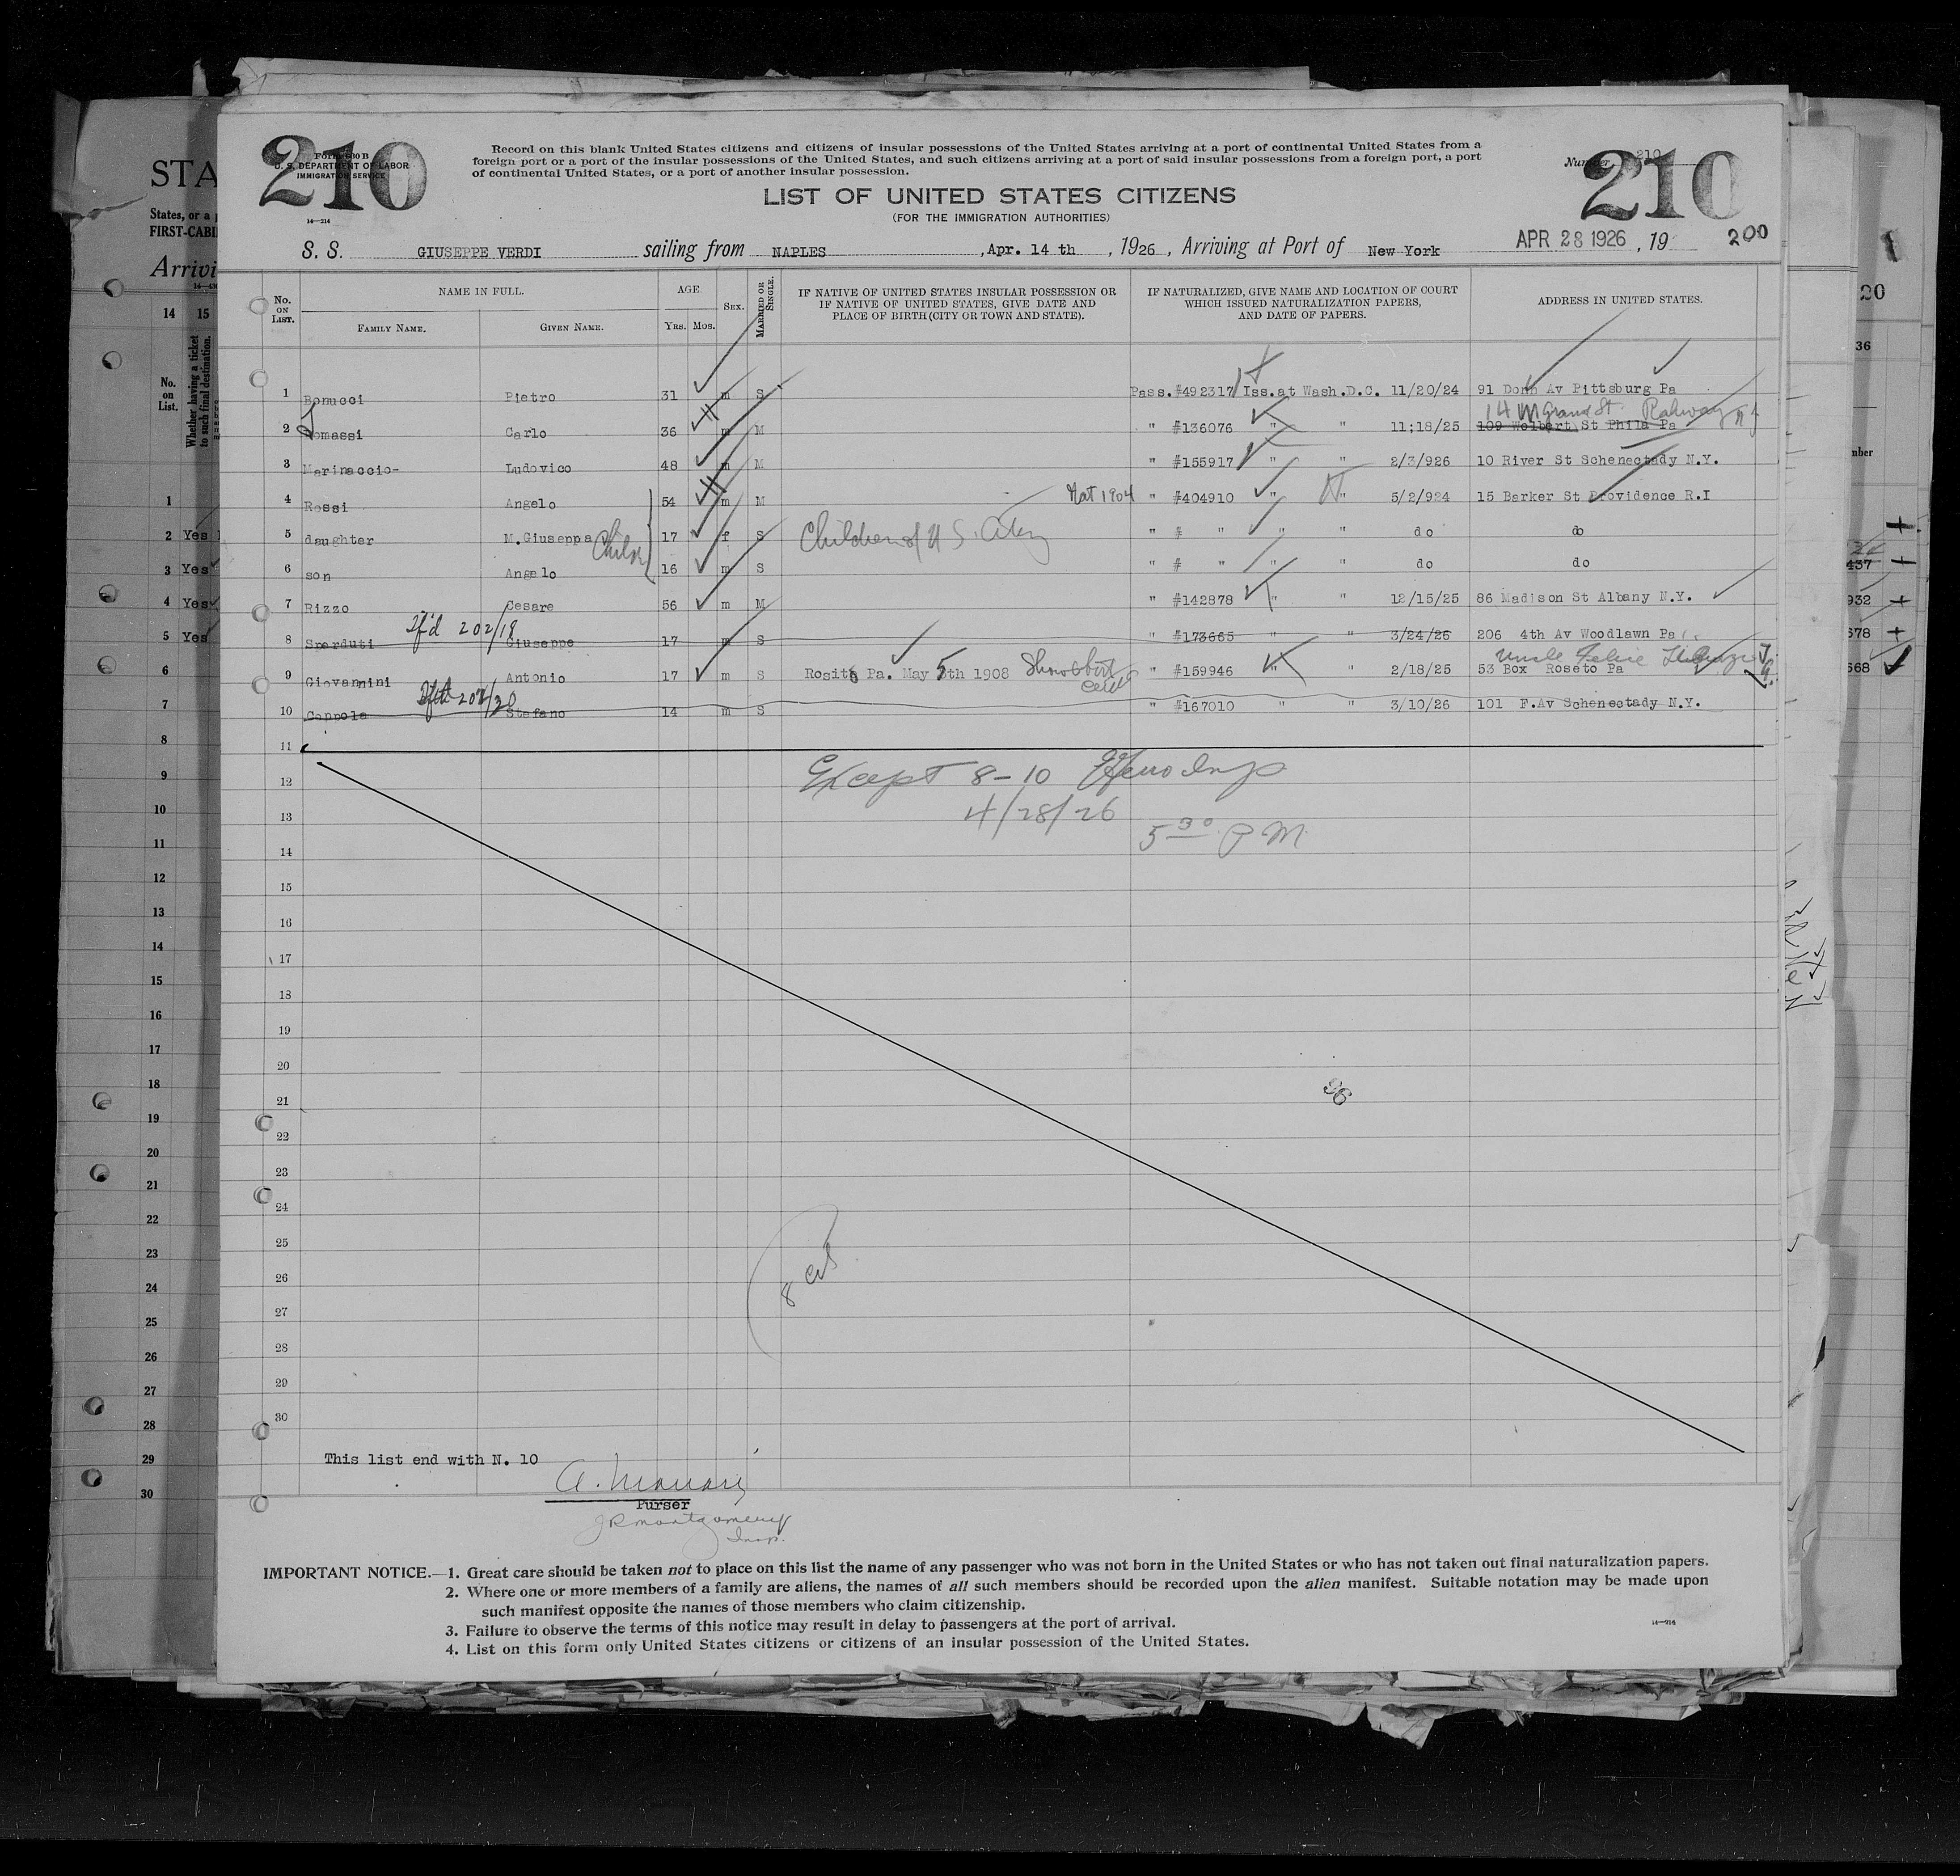 210
FORM 630 B
U. S. DEPARTMENT OF LABOR
IMMIGRATION SERVICE
14—214
Record on this blank United States citizens and citizens of insular possessions of the United States arriving at a port of continental United States from a
foreign port or a port of the insular possessions of the United States, and such citizens arriving at a port of said insular possessions from a foreign port, a port
of continental United States, or a port of another insular possession.
Number 210
210
LIST OF UNITED STATES CITIZENS
(FOR THE IMMIGRATION AUTHORITIES)
S. S. GIUSEPPE VERDI sailing from NAPLES , Apr. 14 th , 1926 , Arriving at Port of New York APR 28 1926 , 19 200
No. ON LIST. NAME IN FULL. FAMILY NAME. GIVEN NAME. AGE. YRS. MOS. SEX. MARRIED OR SINGLE. IF NATIVE OF UNITED STATES INSULAR POSSESSION OR IF NATIVE OF UNITED STATES, GIVE DATE AND PLACE OF BIRTH (CITY OR TOWN AND STATE). IF NATURALIZED, GIVE NAME AND LOCATION OF COURT WHICH ISSUED NATURALIZATION PAPERS, AND DATE OF PAPERS. ADDRESS IN UNITED STATES.
1 Bonucci Pietro 31 m S Pass. #492317 Iss. at Wash. D.C. 11/20/24 91 Donn Av Pittsburg Pa
14 W Grand St. Rahway N J
2 Tomassi Carlo 36 m M " #136076 " " 11;18/25 109 Wolbert St Phila Pa
3 Marinaccio- Ludovico 48 m M " #155917 " " 2/3/926 10 River St Schenectady N.Y.
4 Rossi Angelo 54 m M Nat 1904 " #404910 " " 5/2/924 15 Barker St Providence R.I
5 daughter M.Giuseppa 17 f S Children of U S. City " # " " " do do
6 son Angelo 16 m S " # " " " do do
7 Rizzo Cesare 56 m M " #142878 " " 12/15/25 86 Madison St Albany N.Y.
8 Sparduti Tf'd 202/19 Giuseppe 17 m S " #173665 " " 3/24/26 206 4th Av Woodlawn Pa
Uncle Felice
9 Giovannini Antonio 17 m S Rosito Pa. May 5th 1908 Show birth " #159946 " " 2/18/25 53 Box Roseto Pa
10 Coppola Stefano 14 m S " #167010 " " 3/10/26 101 F.Av Schenectady N.Y.
11
12 Except 8-10 Insp
13 4/28/26 5 30 P M.
14
15
16
17
18
19
20
21
22
23
24
25
26
27
28
29
30
96
8 cit
This list end with N. 10
Purser
J R Montgomery
Insp.
IMPORTANT NOTICE.—1. Great care should be taken not to place on this list the name of any passenger who was not born in the United States or who has not taken out final naturalization papers.
2. Where one or more members of a family are aliens, the names of all such members should be recorded upon the alien manifest. Suitable notation may be made upon
such manifest opposite the names of those members who claim citizenship.
3. Failure to observe the terms of this notice may result in delay to passengers at the port of arrival.
4. List on this form only United States citizens or citizens of an insular possession of the United States.
14—214
STA
States, or a
FIRST-CABI
Arrivi
14 15
No. on List.
Whether having a ticket to such final destination.
1
2 Yes
3 Yes
4 Yes
5 Yes
6
7
8
9
10
11
12
13
14
15
16
17
18
19
20
21
22
23
24
25
26
27
28
29
30
20
36
437
932
678
668